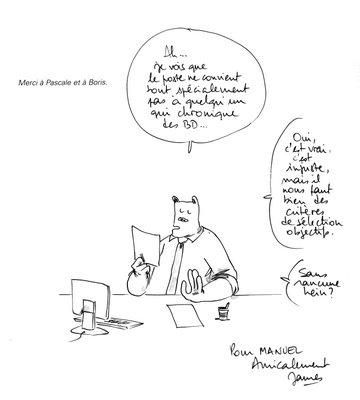 Merci à Pascale et à Boris.
Ah...
je vois que
le poste ne convient
tout spécialement
pas à quelqu'un
qui chronique
des BD...
Oui,
c'est vrai.
c'est
injuste,
mais il
nous faut
bien des
critères
de sélection
objectifs.
Sans
rancune
hein?
Pour MANUEL
Amicalement
James